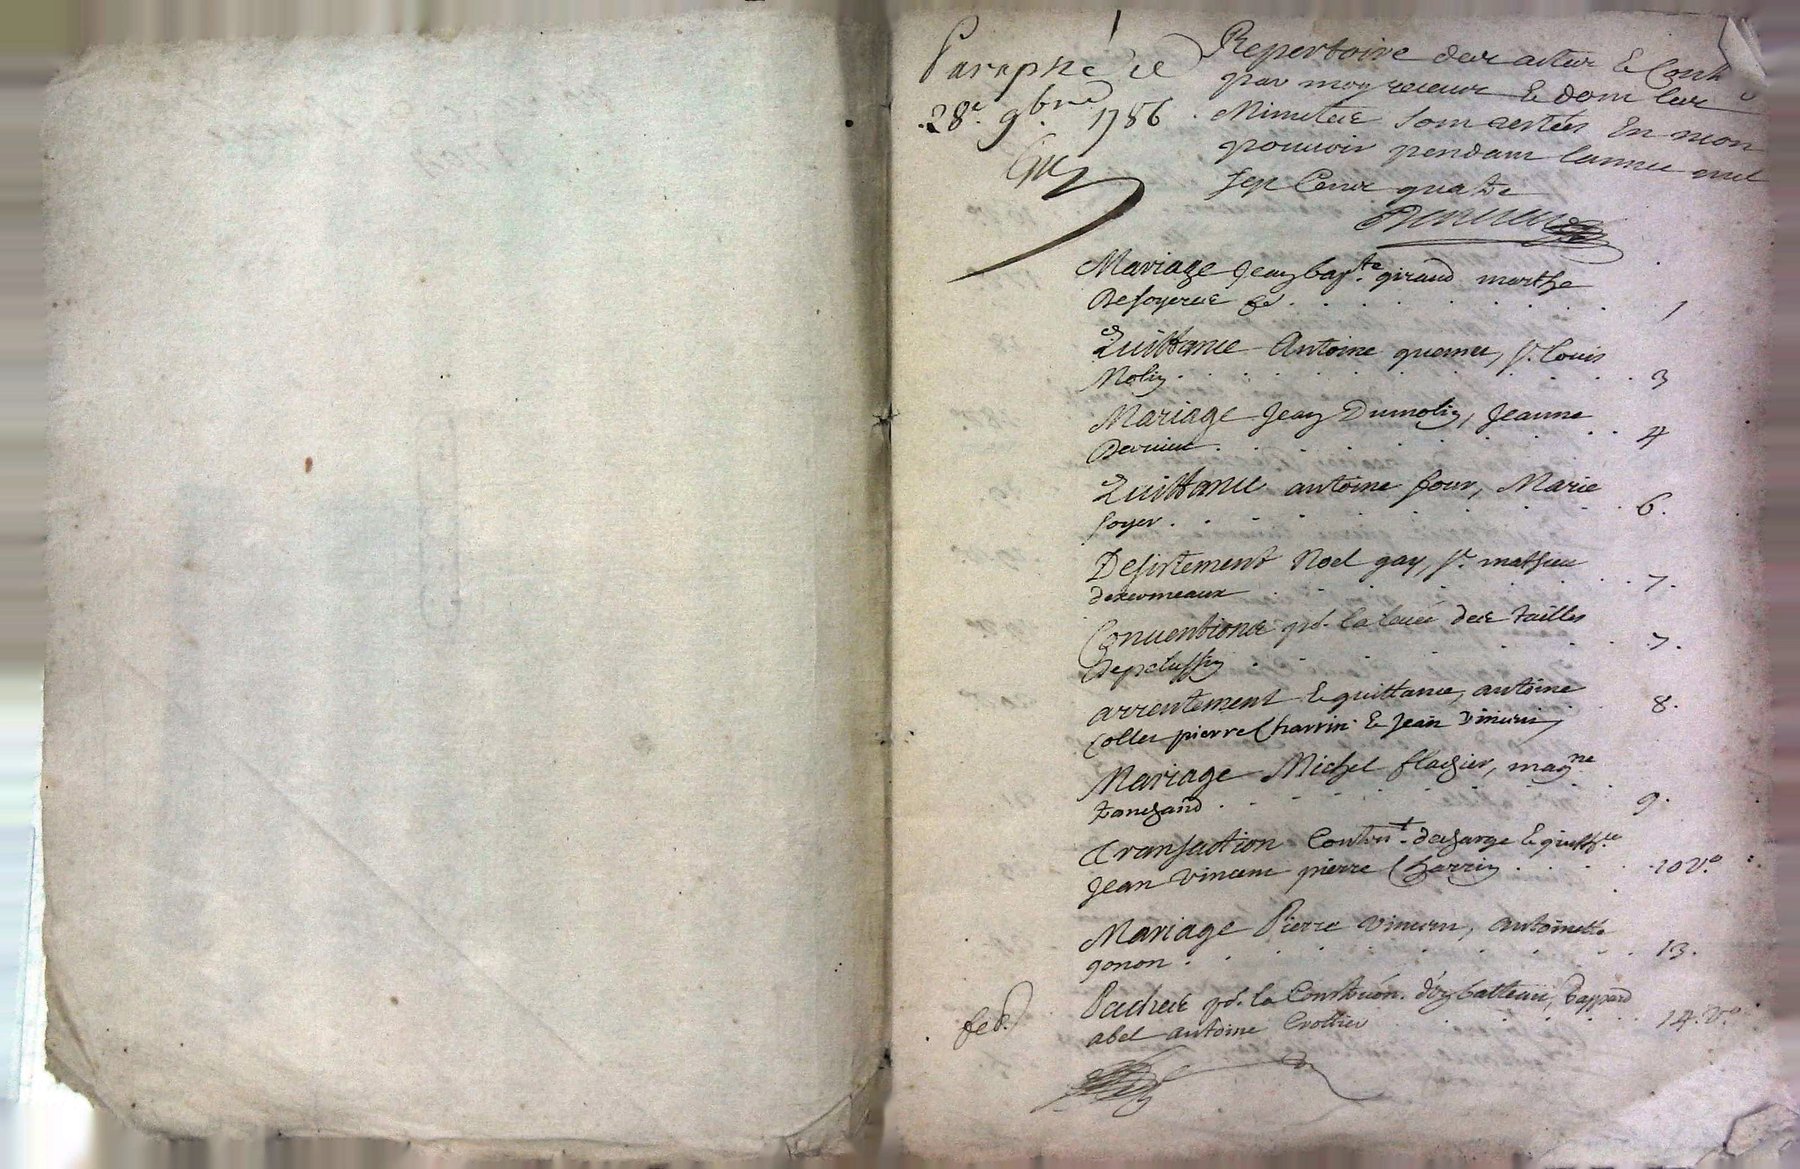 Paraphé le
28e 9bre 1786
Repertoire des actes & Cont
par moy receus & dont les
Minutes sont restées En mon
pouuoir pendant lannee mil
sept Cents quatre
Mariage Jean bapte giraud marthe
Desoyeres &c. 1
Quittance Antoine quemet, sr. Louis
Molin. 3
Mariage Jean Dumolin, Jeanne
4
Quittance antoine four, Marie
soyer. 6.
Desistement Noel gay, sr. mathieu
desermeaux 7.
Conuentions pr. la leueé des tailles
depelussin 7.
arrentement & quittance, antoine
Collet pierre Charrin & Jean Vincent, 8.
Mariage Michel flachier, magne
9.
Transaction decharge & quitt.ce
Jean Vincent pierre Charrin 10 Vo.
Mariage Pierre Vincent, antoinette
gonon. 13.
Pachees pr. la Construon. d'un batteau, Gaspard
abel antoine Crottier 14. Vo.